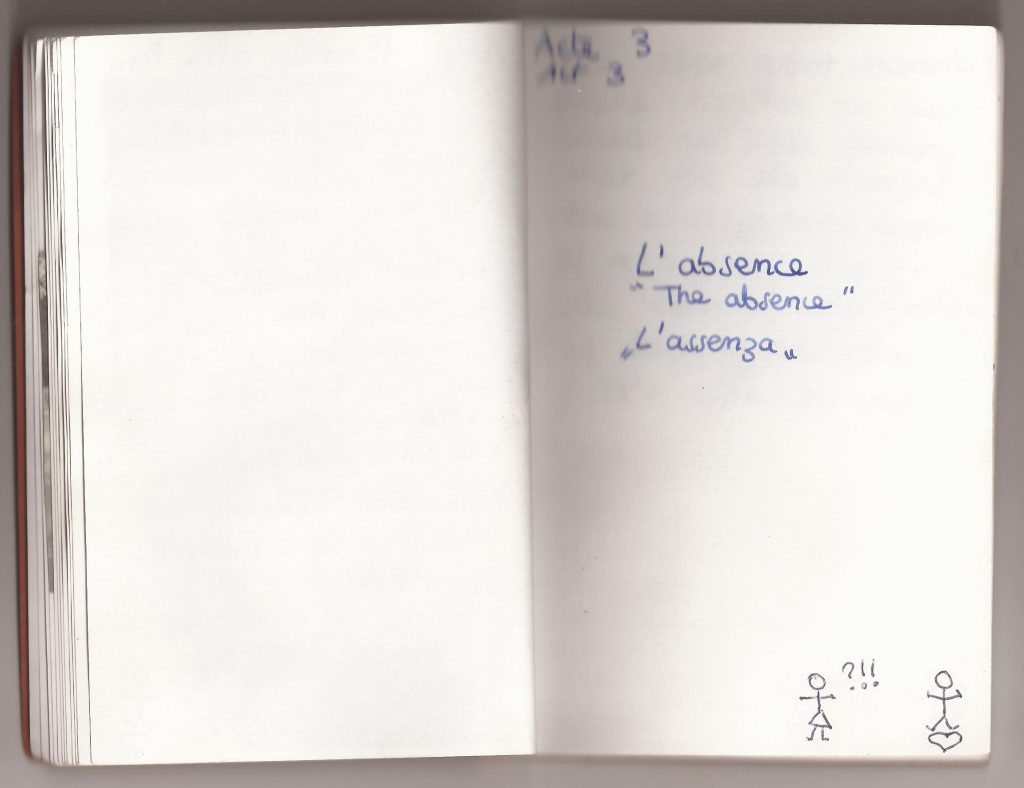 Acte 3
Act 3
L' absence
" The absence "
„L'assenza„
?!!